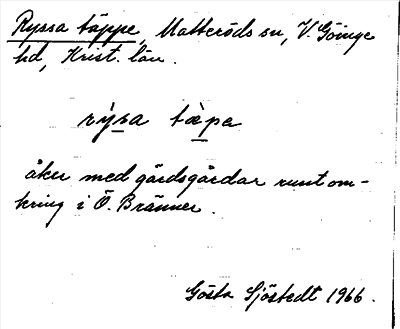 Ryssa täppe, Matteröds sn, V. Göinge
hd, Krist. län.
rỳsa tæ̀pe
åker med gärdsgårdar runt om-
kring i Ö. Bränner.
Gösta Sjöstedt 1966.